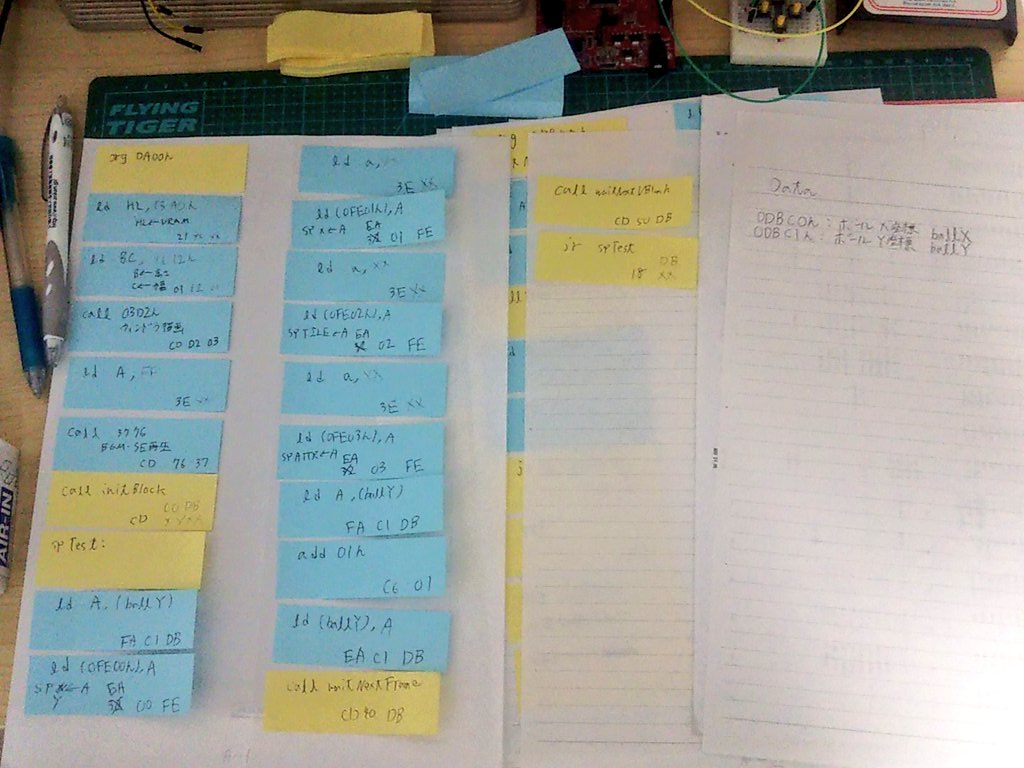 FLYING
TIGER
AIR-IN
org DA00h
ld HL,
HL←VRAM
21 xx xx
ld BC, 1112h
C←幅 01 12 11
call 03D2h
ウィンドウ描画
CD D2 03
ld A, FF
3E xx
call 3776
BGM・SE再生
CD 76 37
call initBlock
CD
spTest:
ld A, (ballY)
FA C1 DB
ld (0FE00h), A
EA
00 FE
ld a,
3E xx
ld (0FE01h), A
SPX←A EA
01 FE
ld a, xx
3E xx
ld (0FE02h), A
SPTILE←A EA
02 FE
ld a, xx
3E xx
ld (0FE03h), A
SPATTX←A EA
03 FE
ld A, (ballY)
FA C1 DB
add 01h
C6 01
ld (ballY), A
EA C1 DB
call waitNextFrame
CD 40 DB
call waitNextVBlank
CD 50 DB
jr spTest
DB
18 xx
Data
0DBC0h : ボールX座標 ballX
0DBC1h : ボールY座標 ballY